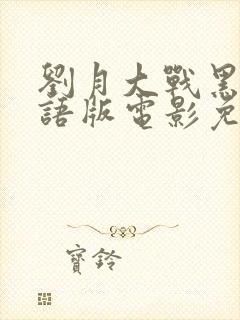 劉月大戰黑
語版電影免
寶鈴